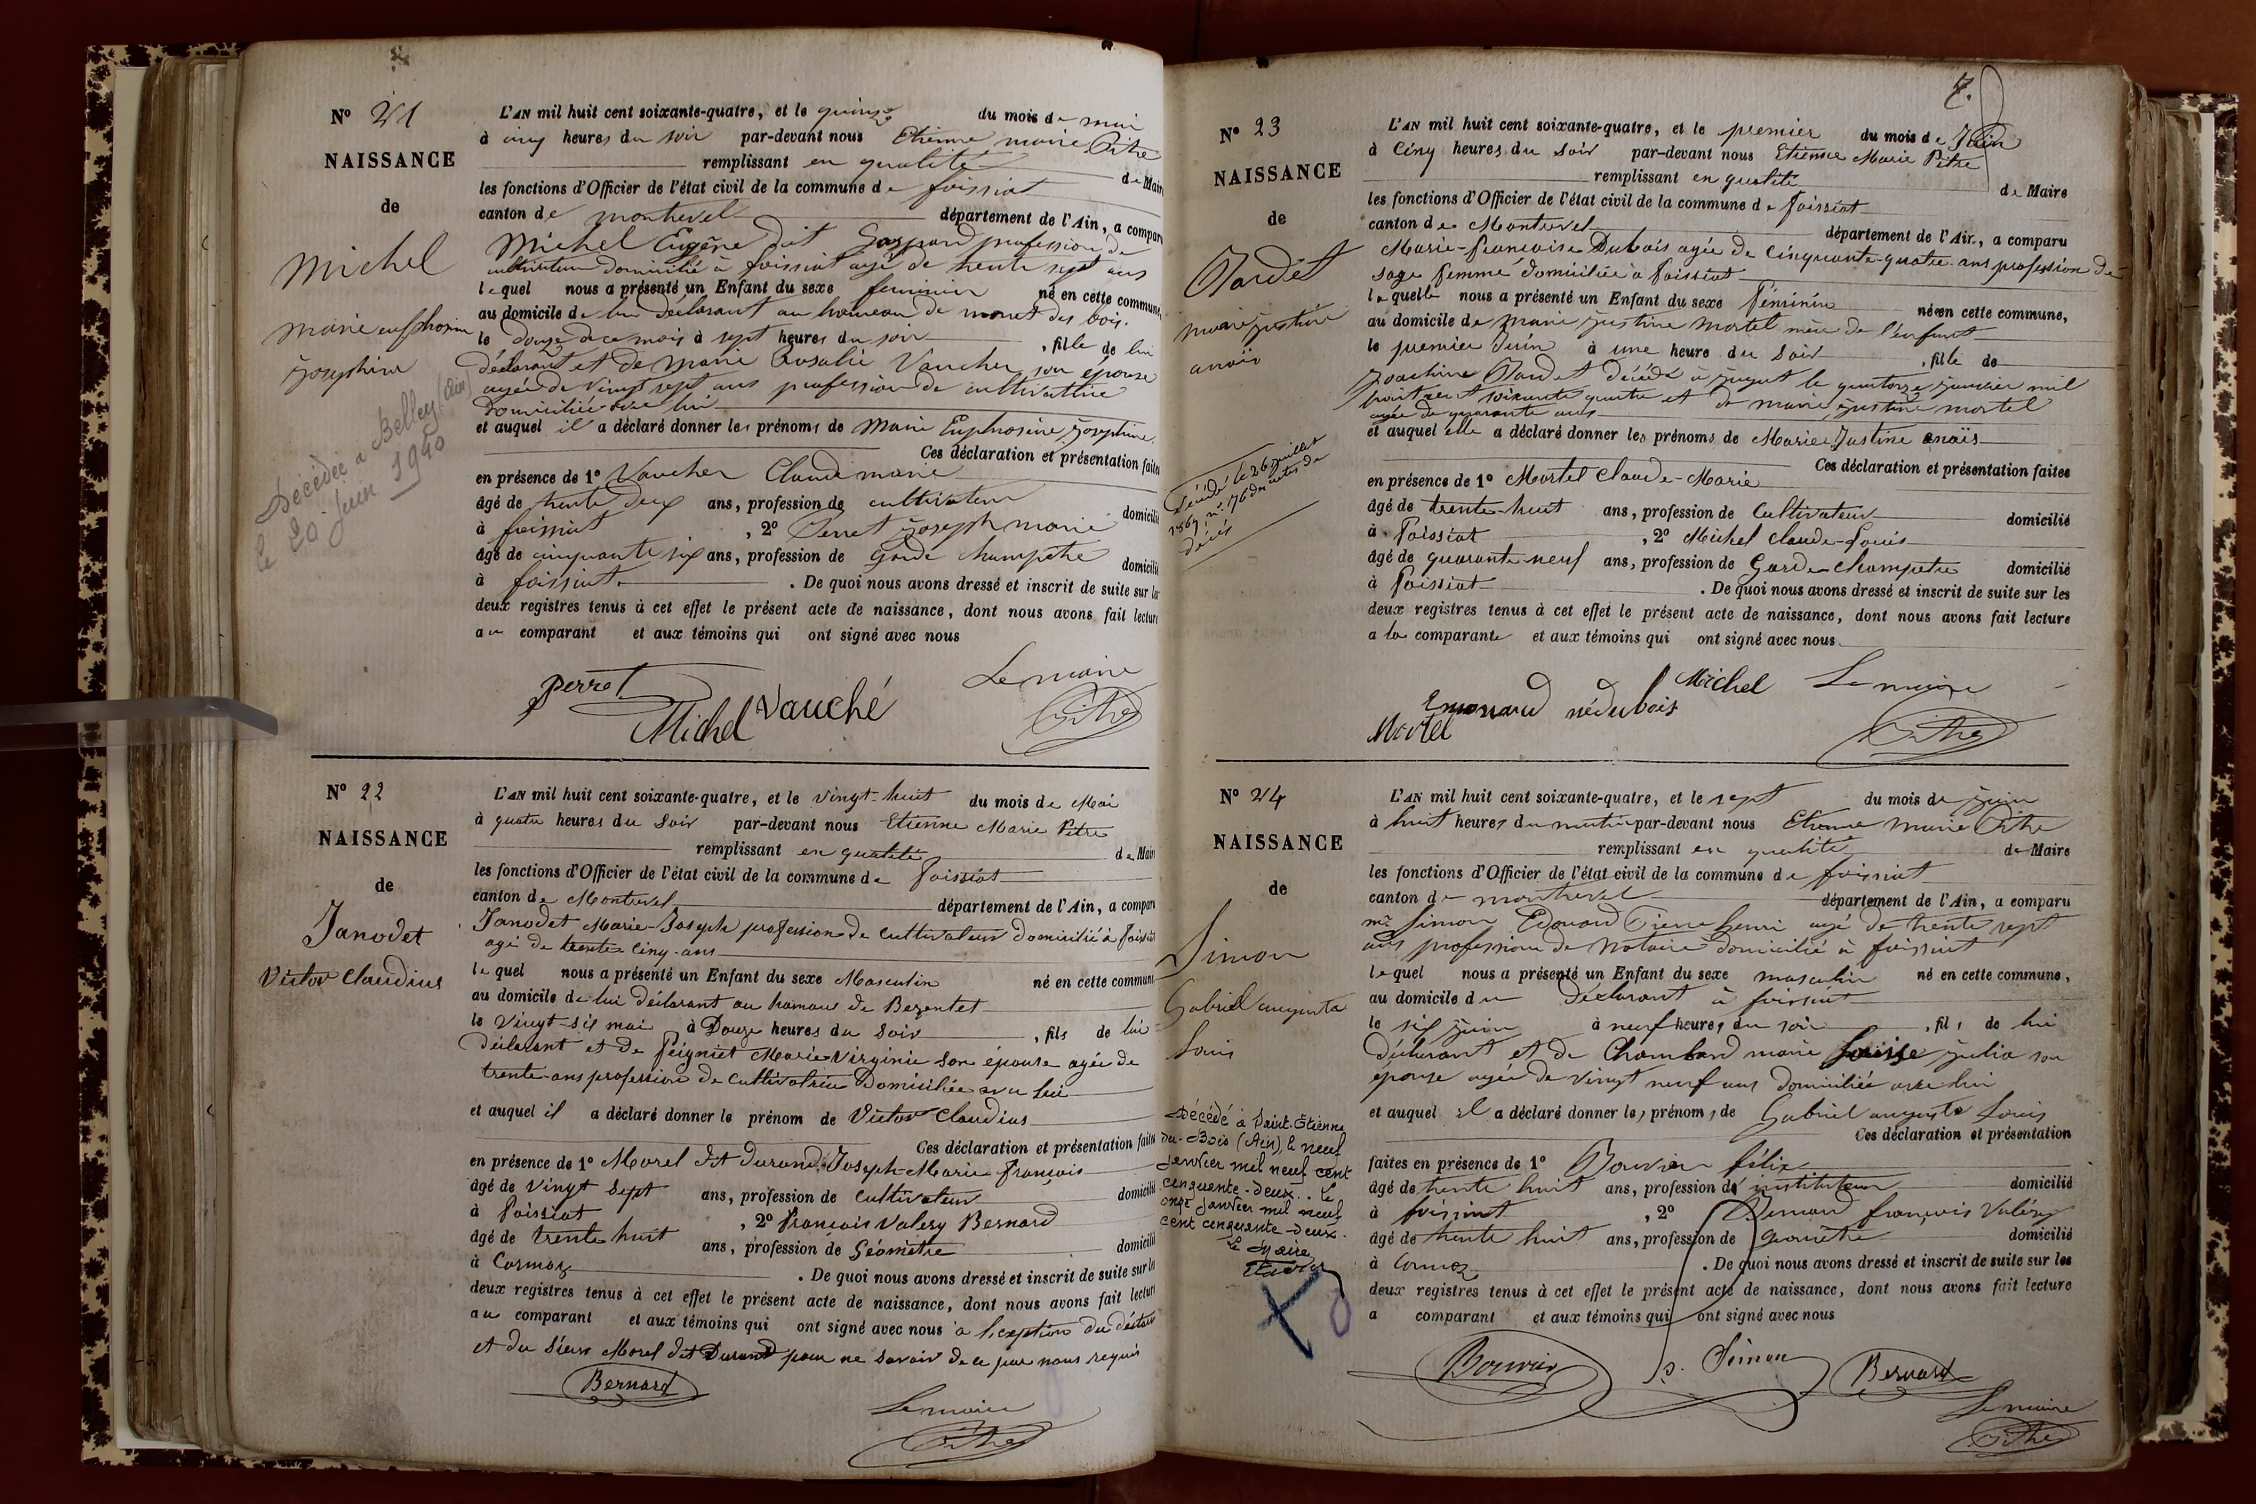 N° 21
NAISSANCE
de
Michel
marie euphrosine
josephine
Décédée à Belley (Ain)
le 20 Juin 1940
L'AN mil huit cent soixante-quatre, et le quinze du mois de mai
à cinq heures du soir par-devant nous Etienne marie Pitre
remplissant en qualité de Maire
les fonctions d'Officier de l'état civil de la commune de foissiat
canton de montrevel département de l'Ain, a comparu
Michel Eugène dit Gaspard profession de
cultivateur domicilié à foissiat agé de trente sept ans
lequel nous a présenté un Enfant du sexe feminin né en cette commune,
au domicile de lui déclarant au hameau de des bois.
le douze de ce mois à sept heures du soir , fille de lui
déclarant et de marie Rosalie Vaucher son épouse
agée de vingt sept ans profession de cultivatrice
domiciliée avec lui
et auquel il a déclaré donner les prénoms de Marie Euphrosine Josephine.
Ces déclaration et présentation faites
en présence de 1° Vaucher Claude marie
âgé de trente deux ans, profession de cultivateur domicilié
à foissiat , 2° Perret Joseph marie
âgé de cinquante six ans, profession de garde champetre domicilié
à foissiat . De quoi nous avons dressé et inscrit de suite sur les
deux registres tenus à cet effet le présent acte de naissance, dont nous avons fait lecture
au comparant et aux témoins qui ont signé avec nous
Perret
Michel Vauché
Le maire
Pitre
N° 22
NAISSANCE
de
Janodet
Victor Claudius
L'AN mil huit cent soixante-quatre, et le vingt-huit du mois de Mai
à quatre heures du soir par-devant nous Etienne Marie Pitre
remplissant en qualité de Maire
les fonctions d'Officier de l'état civil de la commune de foissiat
canton de Montrevel département de l'Ain, a comparu
Janodet Marie-Joseph profession de cultivateur domicilié à foissiat
agé de trente cinq-ans
lequel nous a présenté un Enfant du sexe Masculin né en cette commune
au domicile de lui déclarant au hameau de Bezentet
le vingt-six mai à Douze heures du soir , fils de lui
déclarant et de Peigniet Marie Virginie son épouse agée de
trente-ans profession de cultivatrice Domiciliée avec lui
et auquel il a déclaré donner le prénom de Victor Claudius
Ces déclaration et présentation faites
en présence de 1° Morel dit Durand, Joseph-Marie françois
âgé de vingt sept ans, profession de cultivateur domicilié
à foissiat , 2° françois Valery Bernard
âgé de trente huit ans, profession de Géomètre domicilié
à Cormoz . De quoi nous avons dressé et inscrit de suite sur les
deux registres tenus à cet effet le présent acte de naissance, dont nous avons fait lecture
au comparant et aux témoins qui ont signé avec nous à l'exception du déclarant
et du sieur Morel dit Durand pour ne savoir de ce par nous requis
Bernard
Le maire
Pitre
7.
N° 23
NAISSANCE
de
Bardet
marie justine
anaïs
Décédé le 26 juillet
1864, n° 76 des actes de
décès
L'AN mil huit cent soixante-quatre, et le premier du mois de Juin
à Cinq heures du soir par-devant nous Etienne Marie Pitre
remplissant en qualité de Maire
les fonctions d'Officier de l'état civil de la commune de foissiat
canton de Montrevel département de l'Ain, a comparu
Marie-françoise Dubois agée de cinquante-quatre ans profession de
sage femme domiciliée à foissiat
laquelle nous a présenté un Enfant du sexe féminin né en cette commune,
au domicile de marie justine mortel mère de l'enfant
le premier Juin à une heure du soir , fille de
joachim Bardet décédé à le quatorze janvier mil
huit cent soixante quatre et de marie justine mortel
agée de quarante ans
et auquel elle a déclaré donner les prénoms de Marie Justine anaïs
Ces déclaration et présentation faites
en présence de 1° Mortel Claude-Marie
âgé de trente-huit ans, profession de Cultivateur domicilié
à foissiat , 2° Michel Claude-Louis
âgé de quarante neuf ans, profession de Garde-champetre domicilié
à foissiat . De quoi nous avons dressé et inscrit de suite sur les
deux registres tenus à cet effet le présent acte de naissance, dont nous avons fait lecture
a la comparante et aux témoins qui ont signé avec nous
Michel Le maire
né dubois
Mortel
Pitre
N° 24
NAISSANCE
de
Simon
Gabriel auguste
Louis
Décédé à Saint-Etienne
du-Bois (Ain), le neuf
janvier mil neuf cent
cinquante-deux.. Le
onze janvier mil neuf
cent cinquante-deux.
Le Maire
L'AN mil huit cent soixante-quatre, et le sept du mois de juin
à huit heures du matin par-devant nous Etienne Marie Pitre
remplissant en qualité de Maire
les fonctions d'Officier de l'état civil de la commune de foissiat
canton de montrevel département de l'Ain, a comparu
mr Simon Edouard Pierre henri agé de trente sept
ans profession de Notaire domicilié à foissiat
lequel nous a présenté un Enfant du sexe masculin né en cette commune,
au domicile du déclarant à foissiat
le six juin à neuf heures du soir , fils de lui
déclarant et de Chambard marie Louise julia son
épouse agée de vingt neuf ans domiciliée avec lui
et auquel il a déclaré donner les prénoms de Gabriel auguste Louis
Ces déclaration et présentation
faites en présence de 1° Bouvier félix
âgé de trente huit ans, profession de instituteur domicilié
à foissiat , 2° Bernard françois Valéry
âgé de trente huit ans, profession de géomètre domicilié
à Cormoz . De quoi nous avons dressé et inscrit de suite sur les
deux registres tenus à cet effet le présent acte de naissance, dont nous avons fait lecture
a comparant et aux témoins qui ont signé avec nous
Bouvier Simon Bernard
Le maire
Pitre